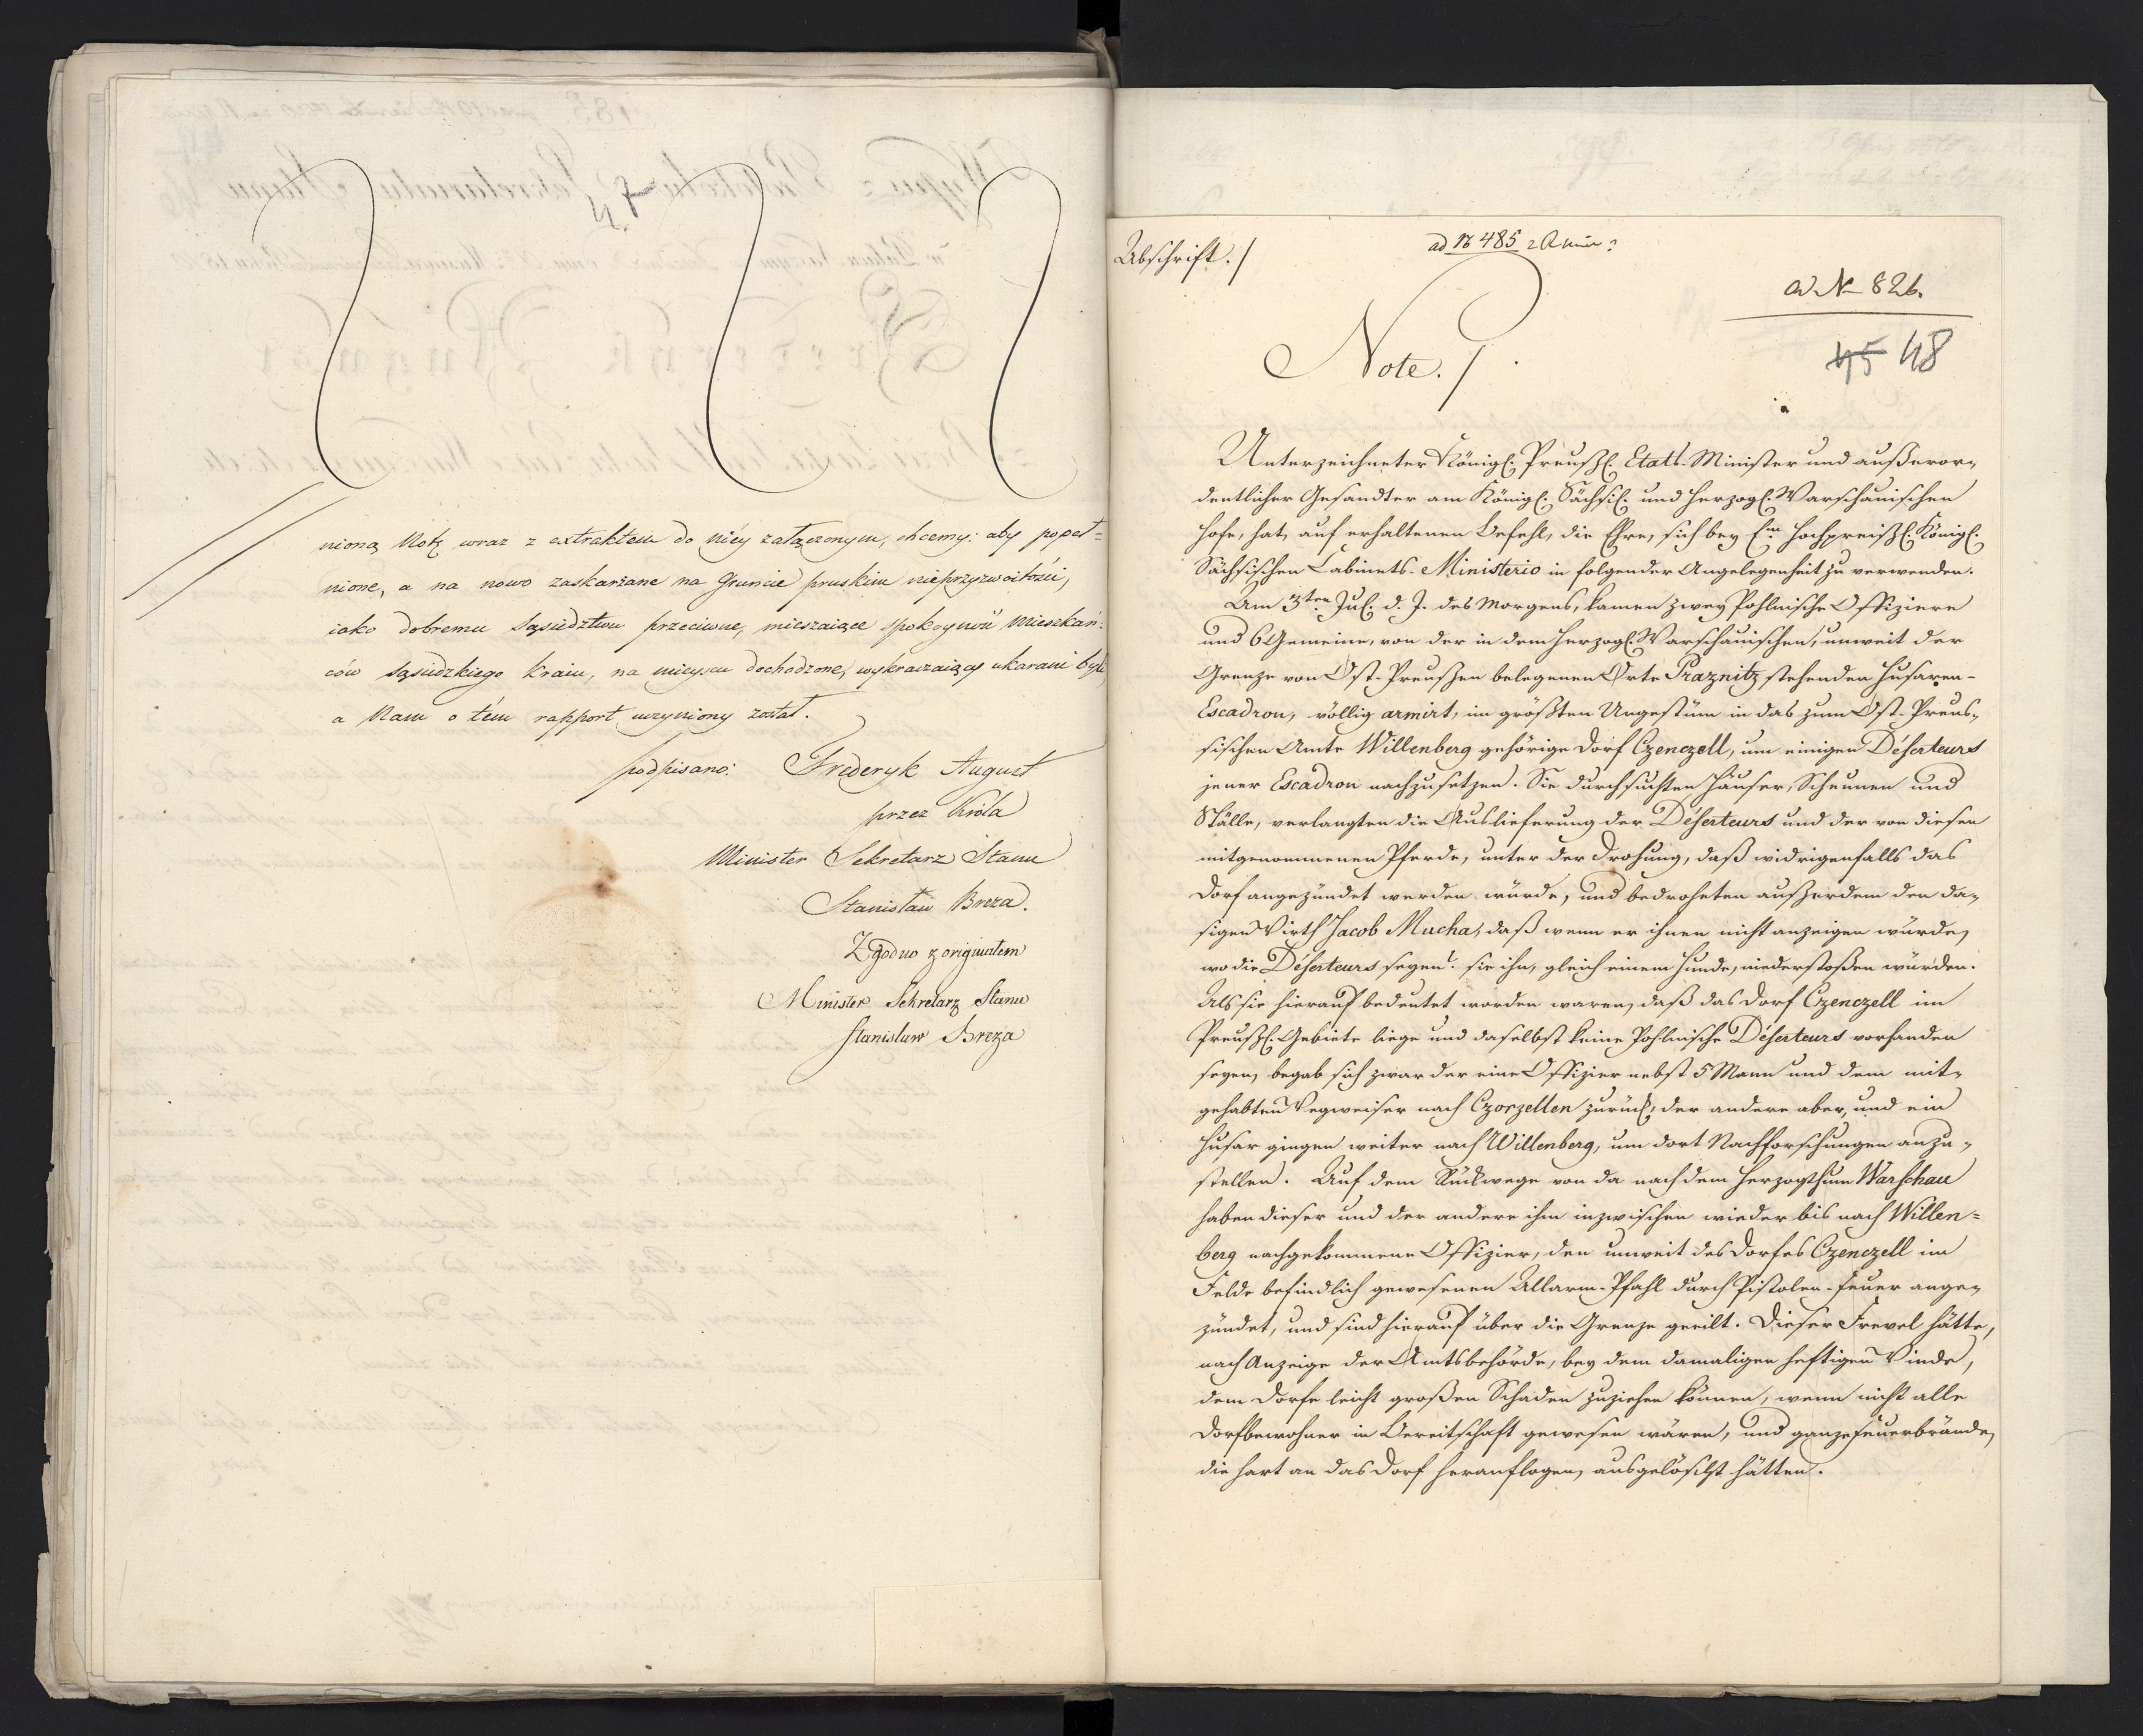 nioną Notę wraz z extraktem do niéy załączonym, chcemy: aby popeł=
nione, a na nowo zaskarżane na Gruncie pruskim nieprzyzwoitości,
iako dobremu sąsiedztwu przeciwne, mieszaiące spokoyność Mieszkań=
ców sąsiedzkiego Kraiu, na mieyscu dochodzone, wykraczaiący ukarani byli,
a Nam o tém rapport uczyniony został.
podpisano: Fréderyk August
przez Króla
Minister Sekretarz Stanu
Stanisław Breza.
Zgodno z originałem
Minister Sekretarz Stanu
Stanisław Breza
Abschrift./
ad № 485
ad № 826.
45 48
Note./.
Unterzeichneter Königl. Preußl. Etats-Minister und außeror-
dentlicher Gesandter am Königl. Sächsl. und Herzogl. Warschauischen
Hofe, hat, auf erhaltenen Befehl, die Ehre, sich bey Em Hochpreißl. Königl.
Sächsischen Cabinets-Ministerio in folgender Angelegenheit zu verwenden.
Am 3ten Jul. d. J. des Morgens, kamen zwey Pohlnische Offiziere
und 6 Gemeine, von der in dem Herzogl. Warschauischen, unweit der
Grenze von Ost-Preußen belegenen Orte Praznitz stehenden Husaren-
Escadron, völlig armirt, im größten Ungestüm in das zum Ost-Preus-
sischen Amte Willenberg gehörige Dorf Czenczell, um einigen Déserteurs
jener Escadron nachzusetzen. Sie durchsuchten Häuser, Scheunen und
Ställe, verlangten die Auslieferung der Déserteurs und der von diesen
mitgenommenen Pferde, unter der Drohung, daß widrigenfalls das
Dorf angezündet werden würde, und bedroheten außerdem den da-
sigen Wirth Jacob Mucha, daß wenn er ihnen nicht anzeigen würde,
wo die Déserteurs seyen? sie ihn, gleich einem Hunde, niederstoßen würden.
Als sie hierauf bedeutet worden waren, daß das Dorf Czenczell im
Preußl. Gebiete liege und daselbst keine Pohlnische Déserteurs vorhanden
seyen, begab sich zwar der eine Offizier nebst 5 Mann und dem mit-
gehabten Wegweiser nach Czorzellen zurück, der andere aber, und ein
Husar gingen weiter nach Willenberg, um dort Nachforschungen anzu-
stellen. Auf dem Rückwege von da nach dem Herzogthum Warschau
haben dieser und der andere ihm inzwischen wieder bis nach Willen=
berg nachgekommene Offizier, den unweit des Dorfes Czenczell im
Felde befindlich gewesenen Allarm-Pfahl durch Pistolen-Feuer ange-
zündet, und sind hierauf über die Grenze geeilt. Dieser Frevel hätte,
nach Anzeige der Amtsbehörde, bey dem damaligen heftigen Winde,
dem Dorfe leicht großen Schaden zuziehen können, wenn nicht alle
Dorfbewohner in Bereitschaft gewesen wären, und ganze Feuerbrände,
die hart an das Dorf heranflogen, ausgelöscht hätten.